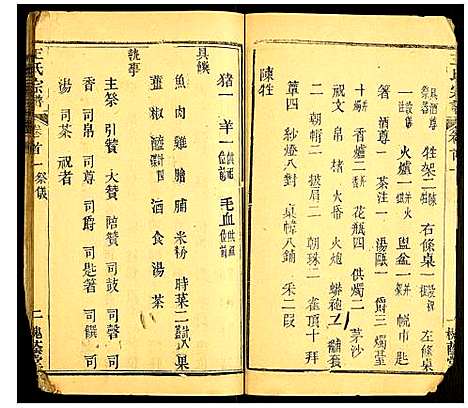 王氏宗譜 卷首一
具酒尊祭器 牲架二 右條桌一 左條桌
一 火爐一 盥盆一 帨巾 匙
箸 酒尊一 茶注一 湯甌一 爵三 燭臺
十 香爐 花瓶四 供燭二 茅沙
祝文 帛 楮 大香 火炮
朝衣二 披肩二 朝珠二 雀頂十 拜
簟四 紗燈八對 桌幃八鋪 采二段
陳牲
猪一 羊一 毛血
具饌
魚 肉 雞 膾 脯 米粉 時菜二 果
薑 椒 酒 食 湯 茶
執事
主祭 引贊 大贊 陪贊 司鼓 司磬 司
香 司帛 司尊 司爵 司匙箸 司饌 司
湯 司茶 祝者
王氏宗譜 卷首一 祭儀 二 槐蔭堂